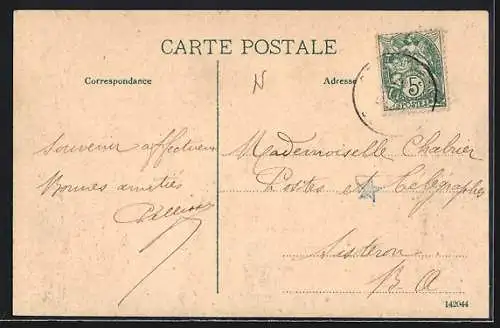 CARTE POSTALE
Correspondance
Adresse
5c
POSTES
Souvenir affectueux
Bonnes amitiés
Mademoiselle Chabrier
Postes et Télégraphes
Sisteron
B A
142044